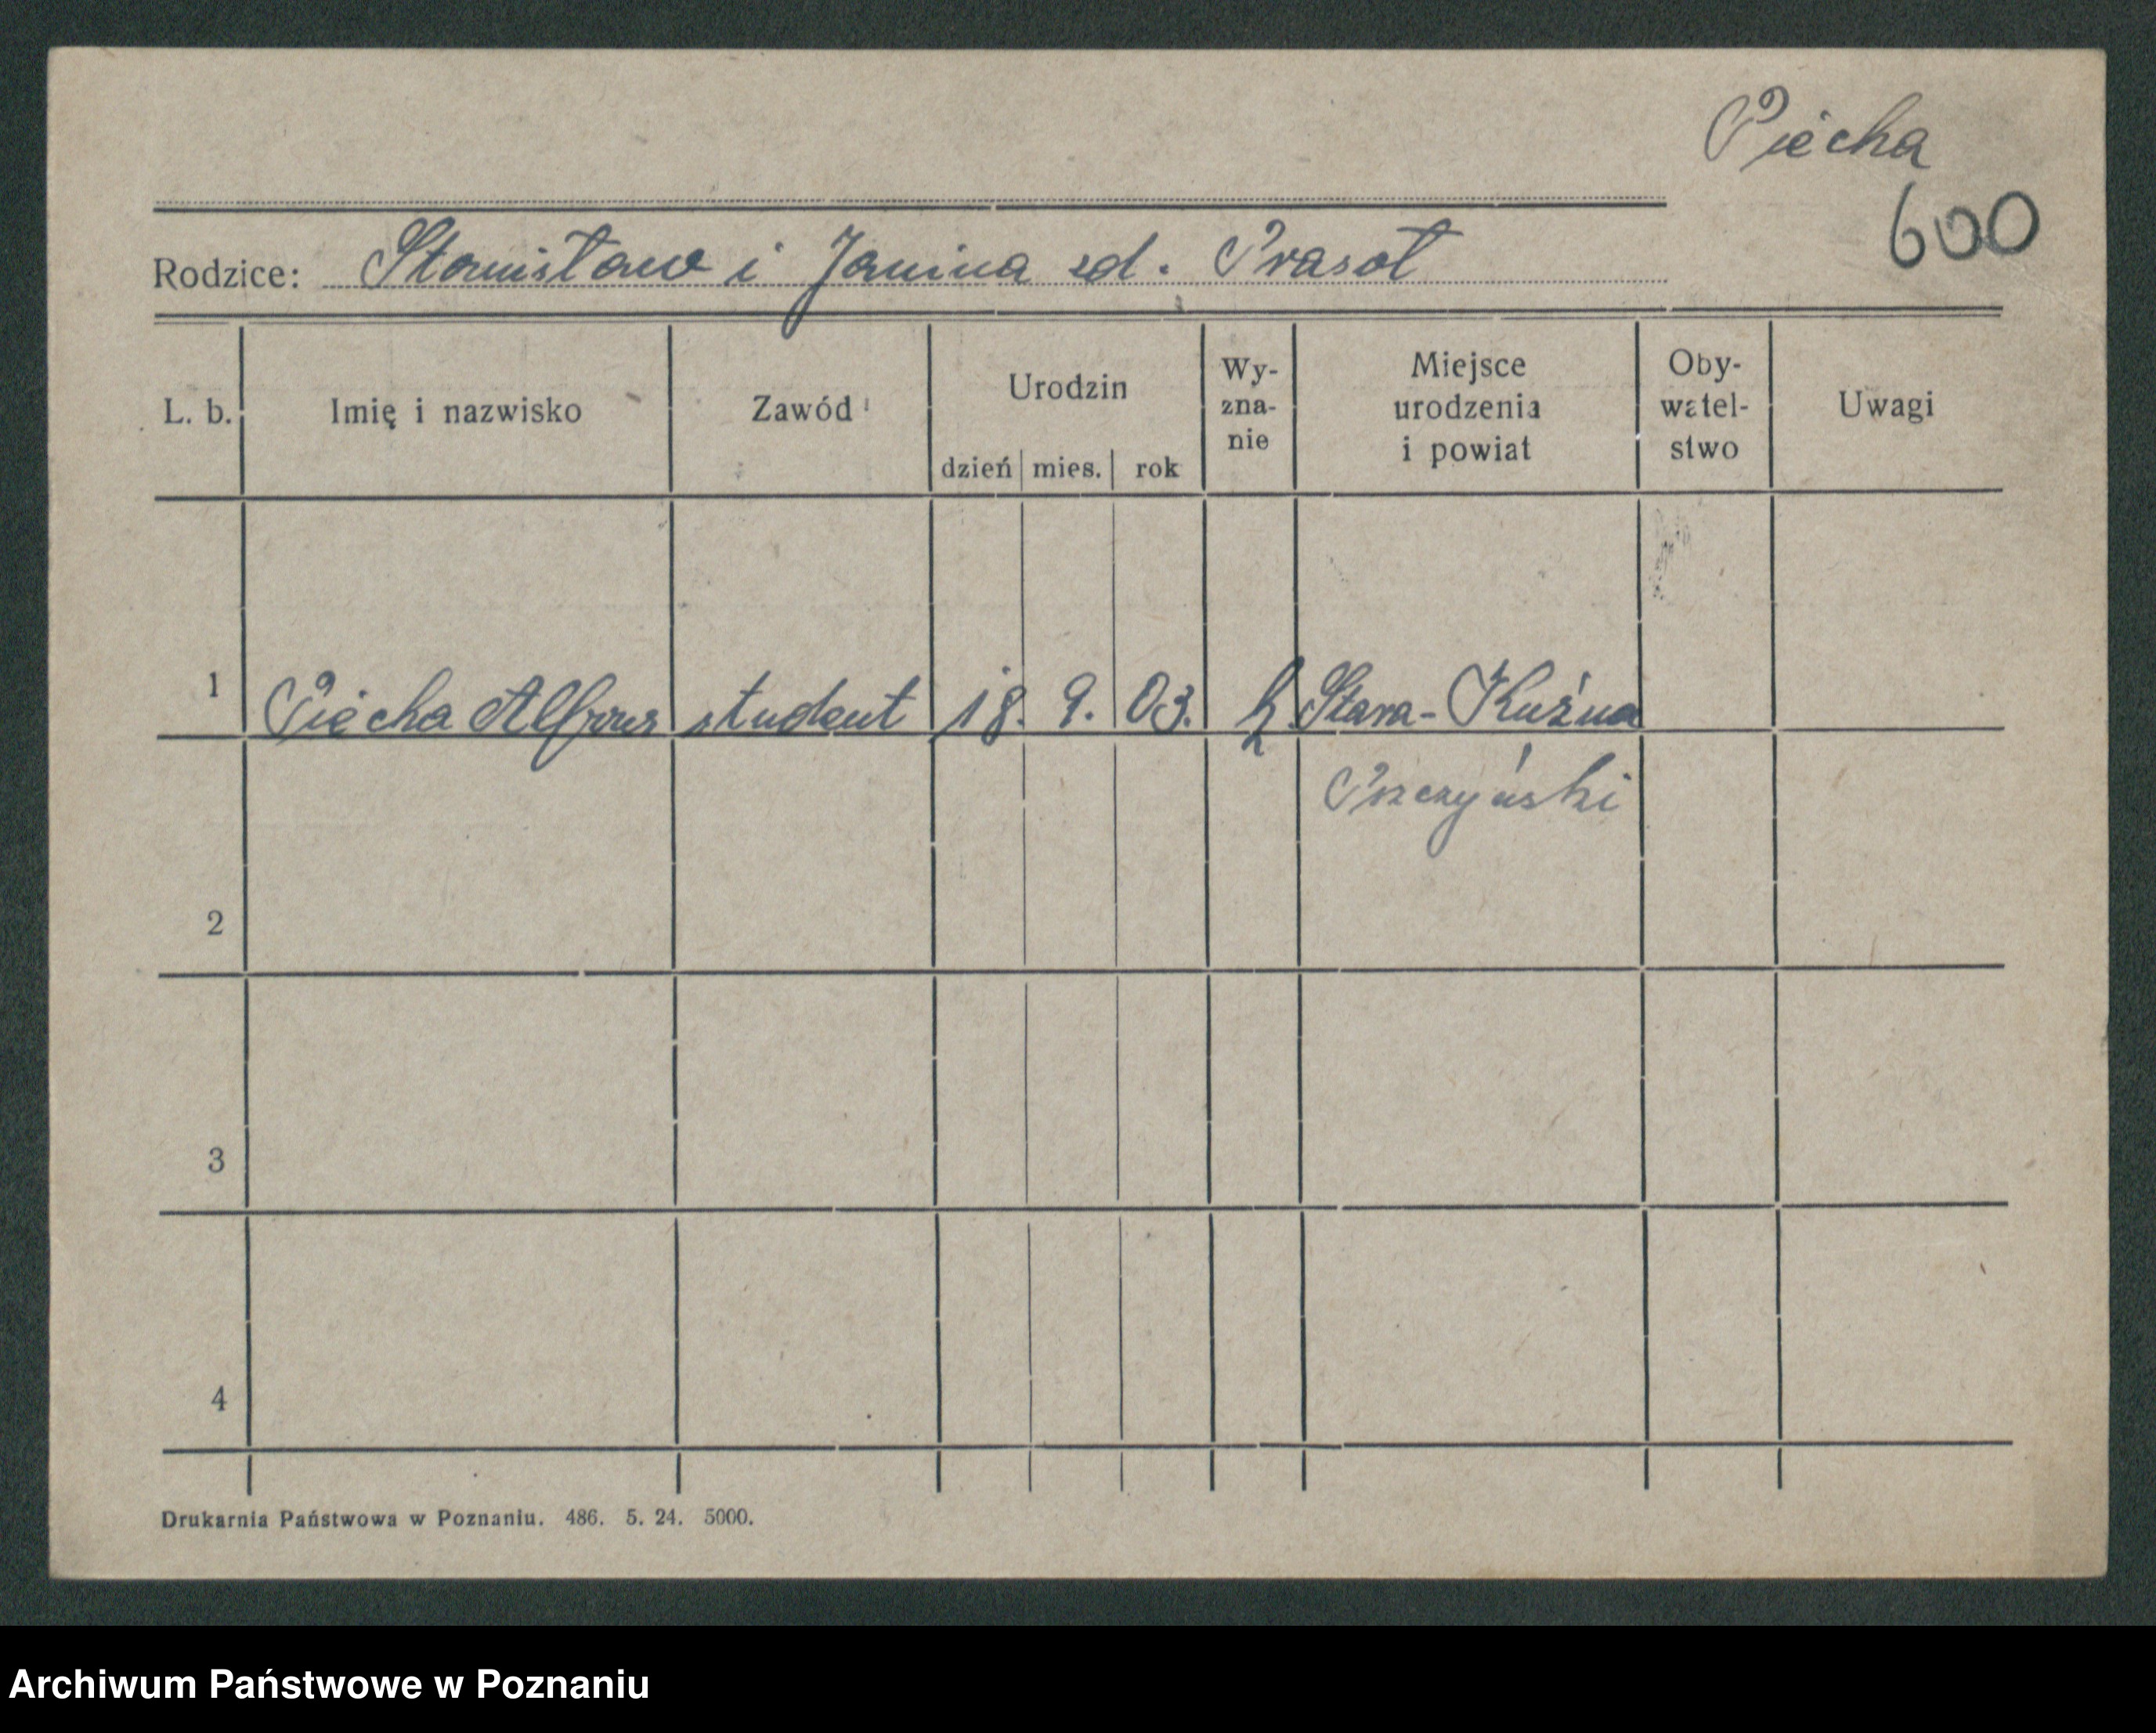 Piecha
600
Rodzice: Stanisław i Janina zd. Prasoł
L. b. Imię i nazwisko Zawód Urodzin dzień mies. rok Wy-zna-nie Miejsce urodzenia i powiat Oby-watel-stwo Uwagi
1 Piecha Alfons student 18. 9. 03. k Stara-Kuźna
Pszczyński
2
3
4
Drukarnia Państwowa w Poznaniu. 486. 5. 24. 5000.
Archiwum Państwowe w Poznaniu